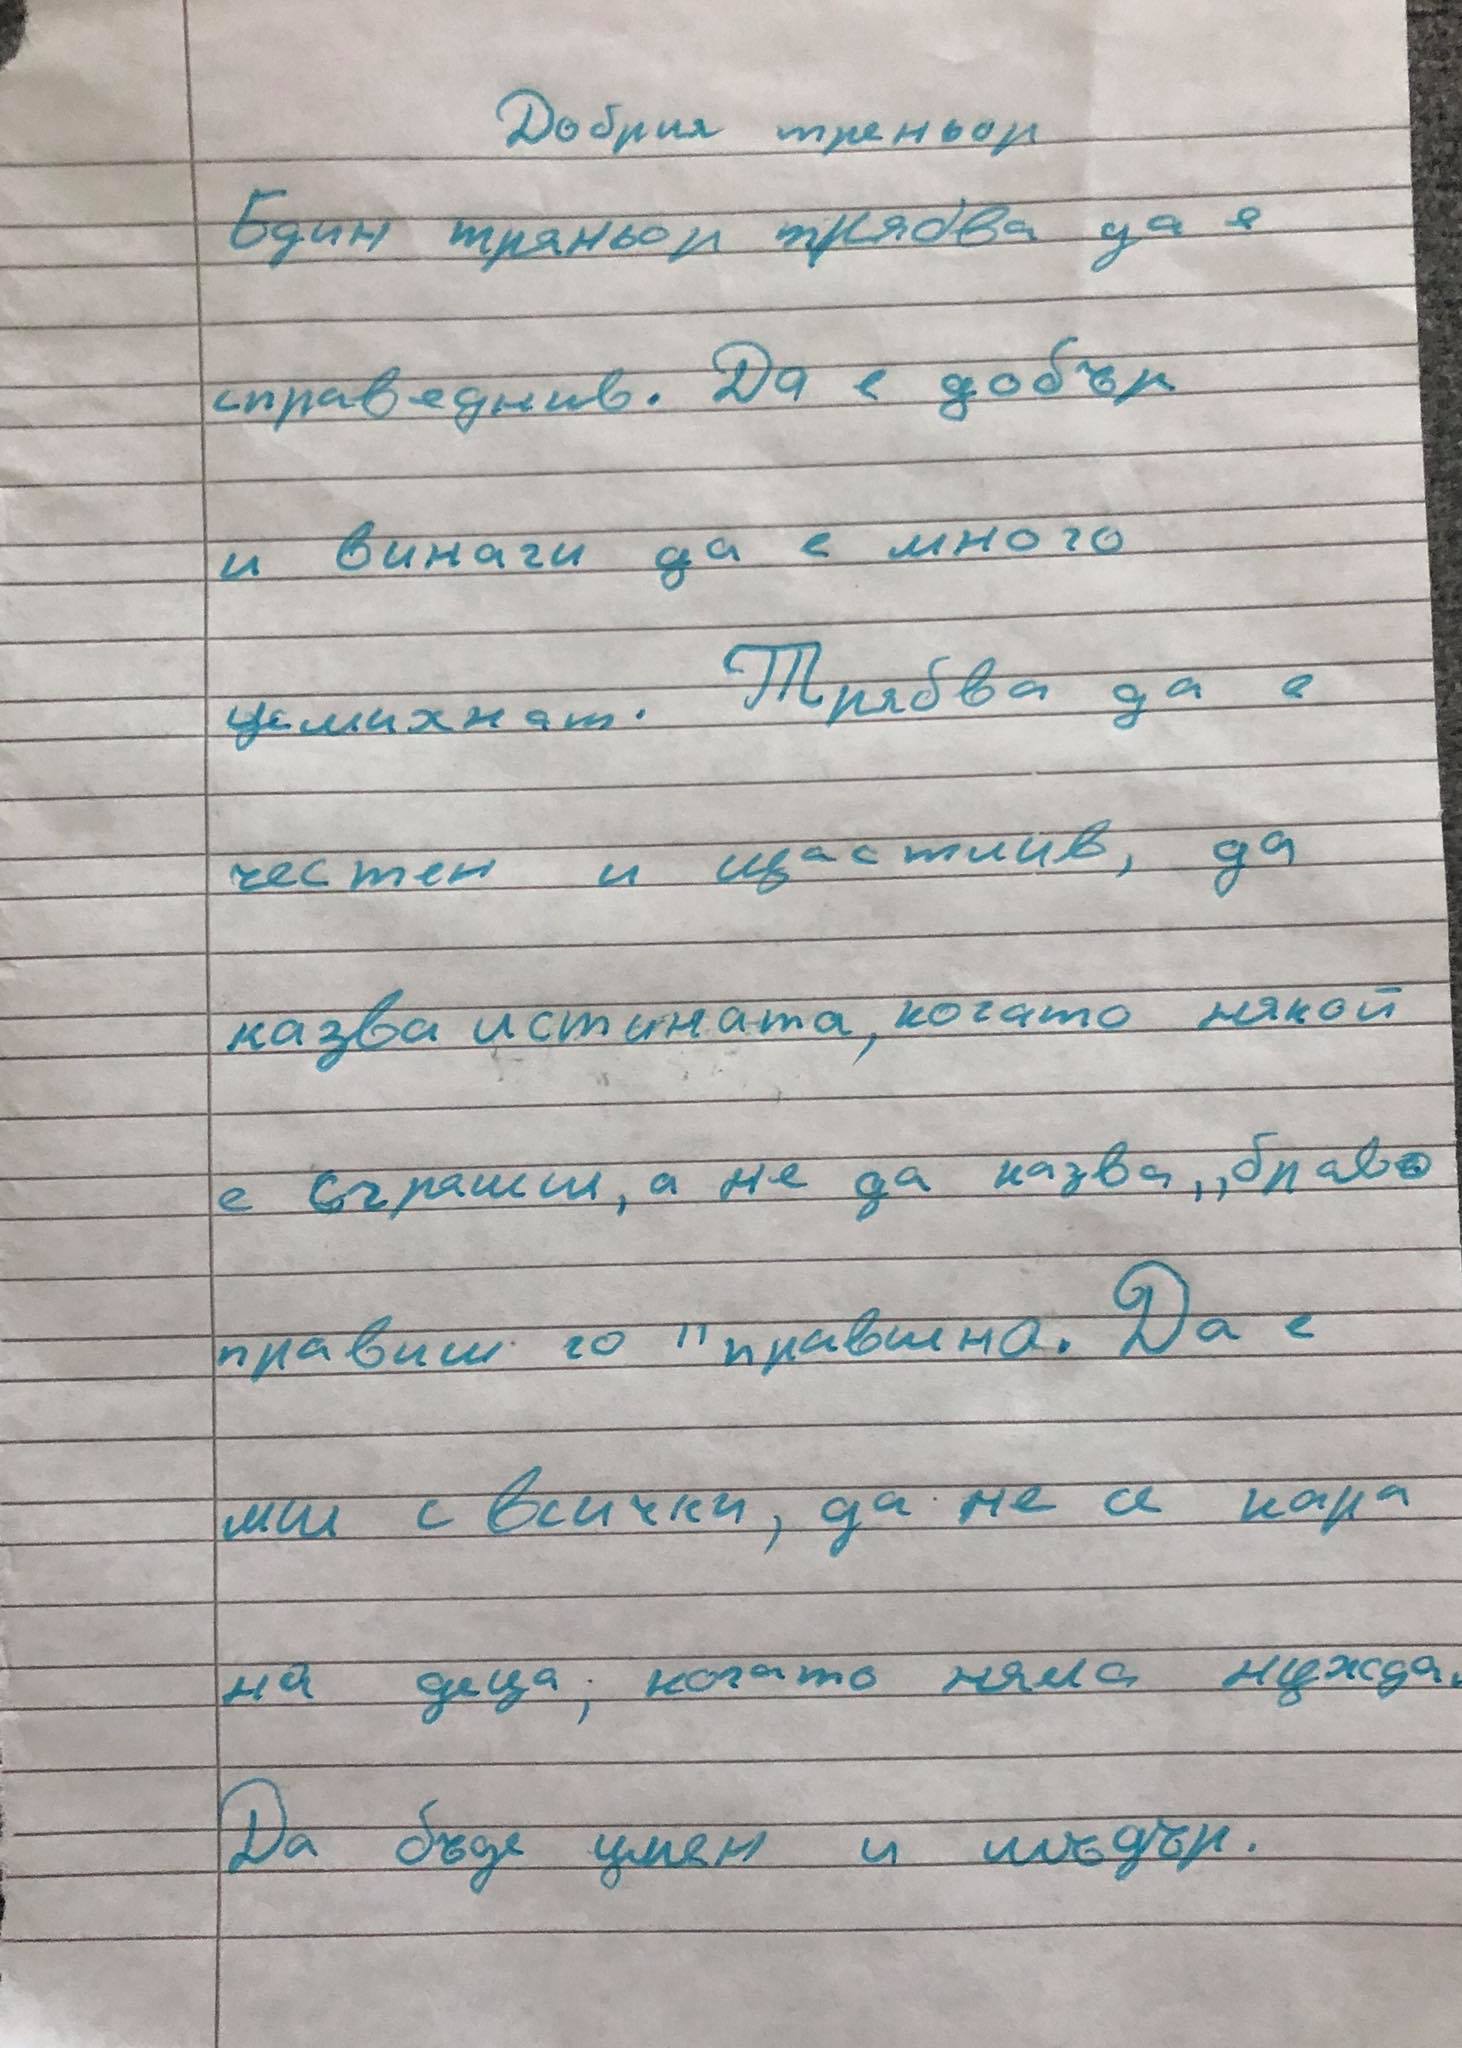 Добрия треньор
Един треньор трябва да е
справедлив. Да е добър
и винаги да е много
усмихнат. Трябва да е
честен и щастлив, да
казва истината, когато някой
е сгрешил, а не да казва, „браво
правиш го " правилно. Да е
мил с всички, да не се кара
на деца, когато няма нужда.
Да бъде умен и мъдър.